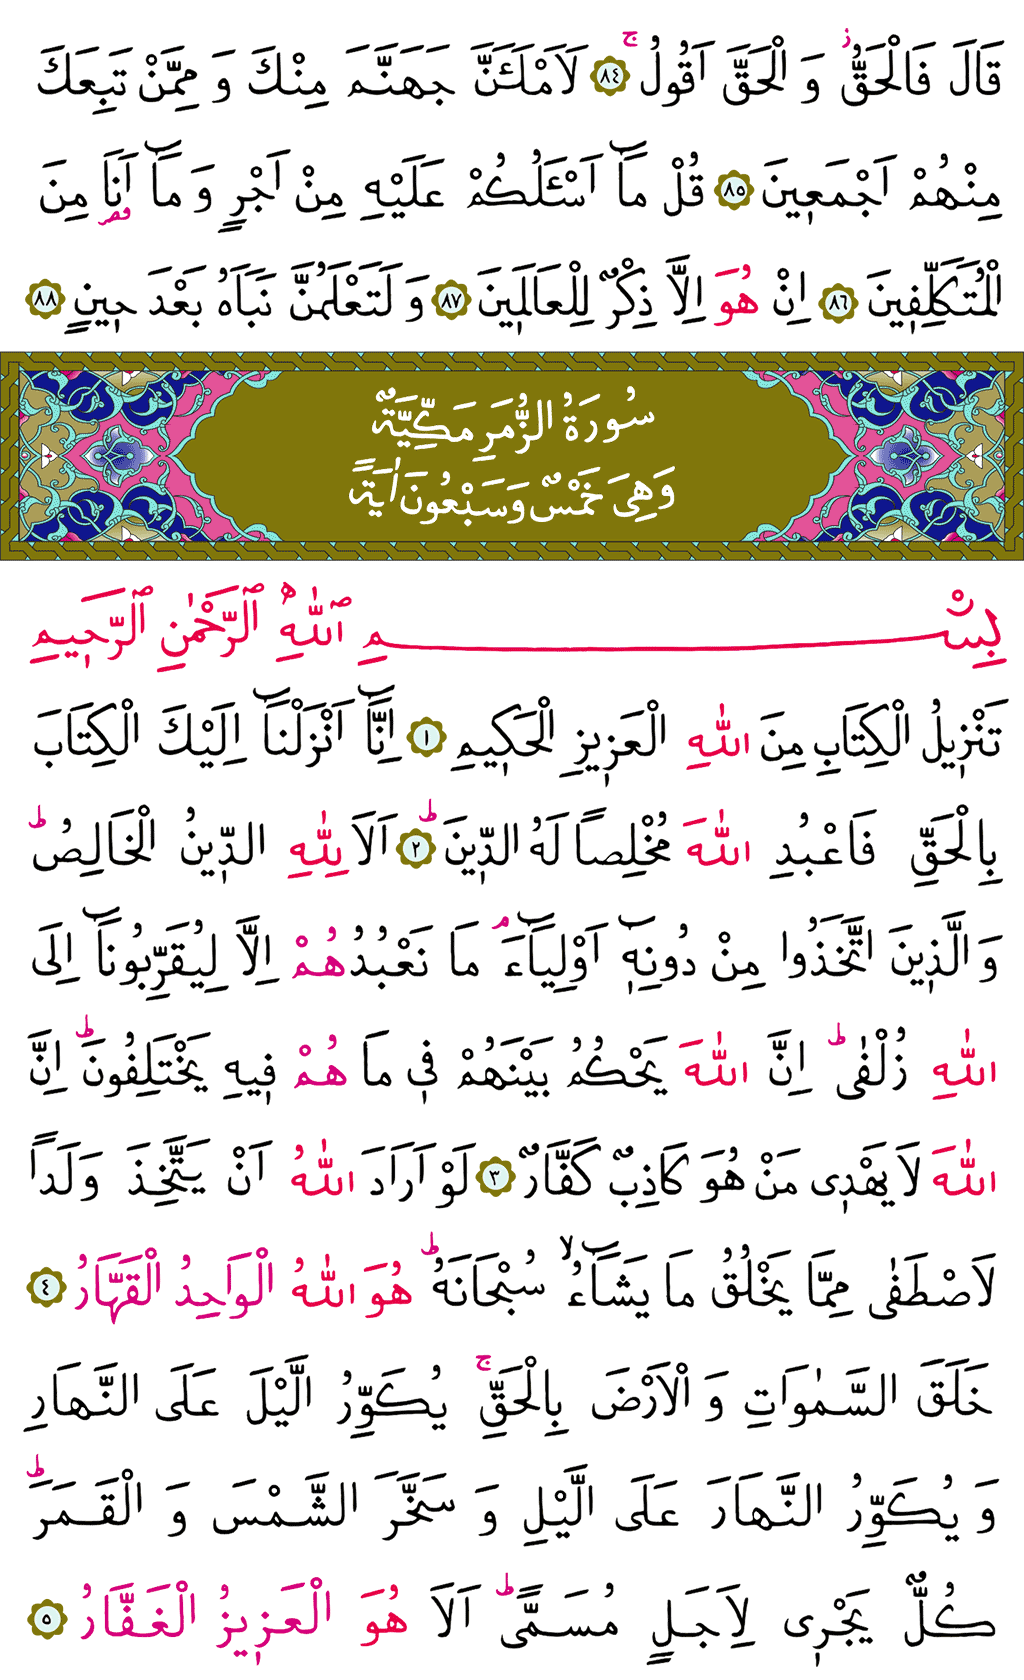 قَالَ فَالْحَقُّ ز وَ الْحَقَّ اَقُولُ ج ٨٤ لَاَمْلَـَٔنَّ جَهَنَّمَ مِنْكَ وَ مِمَّنْ تَبِعَكَ
مِنْهُمْ اَجْمَعٖينَ ٨٥ قُلْ مَٓا اَسْـَٔلُكُمْ عَلَيْهِ مِنْ اَجْرٍ وَ مَٓا اَنَا۬ مِنَ
الْمُتَكَلِّفٖينَ ٨٦ اِنْ هُوَ اِلَّا ذِكْرٌ لِلْعَالَمٖينَ ٨٧ وَ لَتَعْلَمُنَّ نَبَاَهُ بَعْدَ حٖينٍ ٨٨
سُورَةُ الزُّمَرِ مَكِّيَّةٌ
وَهِىَ خَمْسٌ وَسَبْعُونَ اٰيَةً
بِسْــــــــمِ ٱللّٰهِ ٱلرَّحْمٰنِ ٱلرَّحٖيمِ
تَنْزٖيلُ الْكِتَابِ مِنَ اللّٰهِ الْعَزٖيزِ الْحَكٖيمِ ١ اِنَّٓا اَنْزَلْنَٓا اِلَيْكَ الْكِتَابَ
بِالْحَقِّ فَاعْبُدِ اللّٰهَ مُخْلِصاً لَهُ الدّٖينَ ط ٢ اَلَا لِلّٰهِ الدّٖينُ الْخَالِصُ ط
وَ الَّذٖينَ اتَّخَذُوا مِنْ دُونِهٖٓ اَوْلِيَٓاءَ م مَا نَعْبُدُهُمْ اِلَّا لِيُقَرِّبُونَٓا اِلَى
اللّٰهِ زُلْفٰى ط اِنَّ اللّٰهَ يَحْكُمُ بَيْنَهُمْ فٖى مَا هُمْ فٖيهِ يَخْتَلِفُونَ ط اِنَّ
اللّٰهَ لَا يَهْدٖى مَنْ هُوَ كَاذِبٌ كَفَّارٌ ٣ لَوْ اَرَادَ اللّٰهُ اَنْ يَتَّخِذَ وَلَداً
لَاصْطَفٰى مِمَّا يَخْلُقُ مَا يَشَٓاءُ لا سُبْحَانَهُ ط هُوَ اللّٰهُ الْوَاحِدُ الْقَهَّارُ ٤
خَلَقَ السَّمٰوَاتِ وَ الْاَرْضَ بِالْحَقِّ ج يُكَوِّرُ الَّيْلَ عَلَى النَّهَارِ
وَ يُكَوِّرُ النَّهَارَ عَلَى الَّيْلِ وَ سَخَّرَ الشَّمْسَ وَ الْقَمَرَ ط
كُلٌّ يَجْرٖى لِاَجَلٍ مُسَمًّى ط اَلَا هُوَ الْعَزٖيزُ الْغَفَّارُ ٥